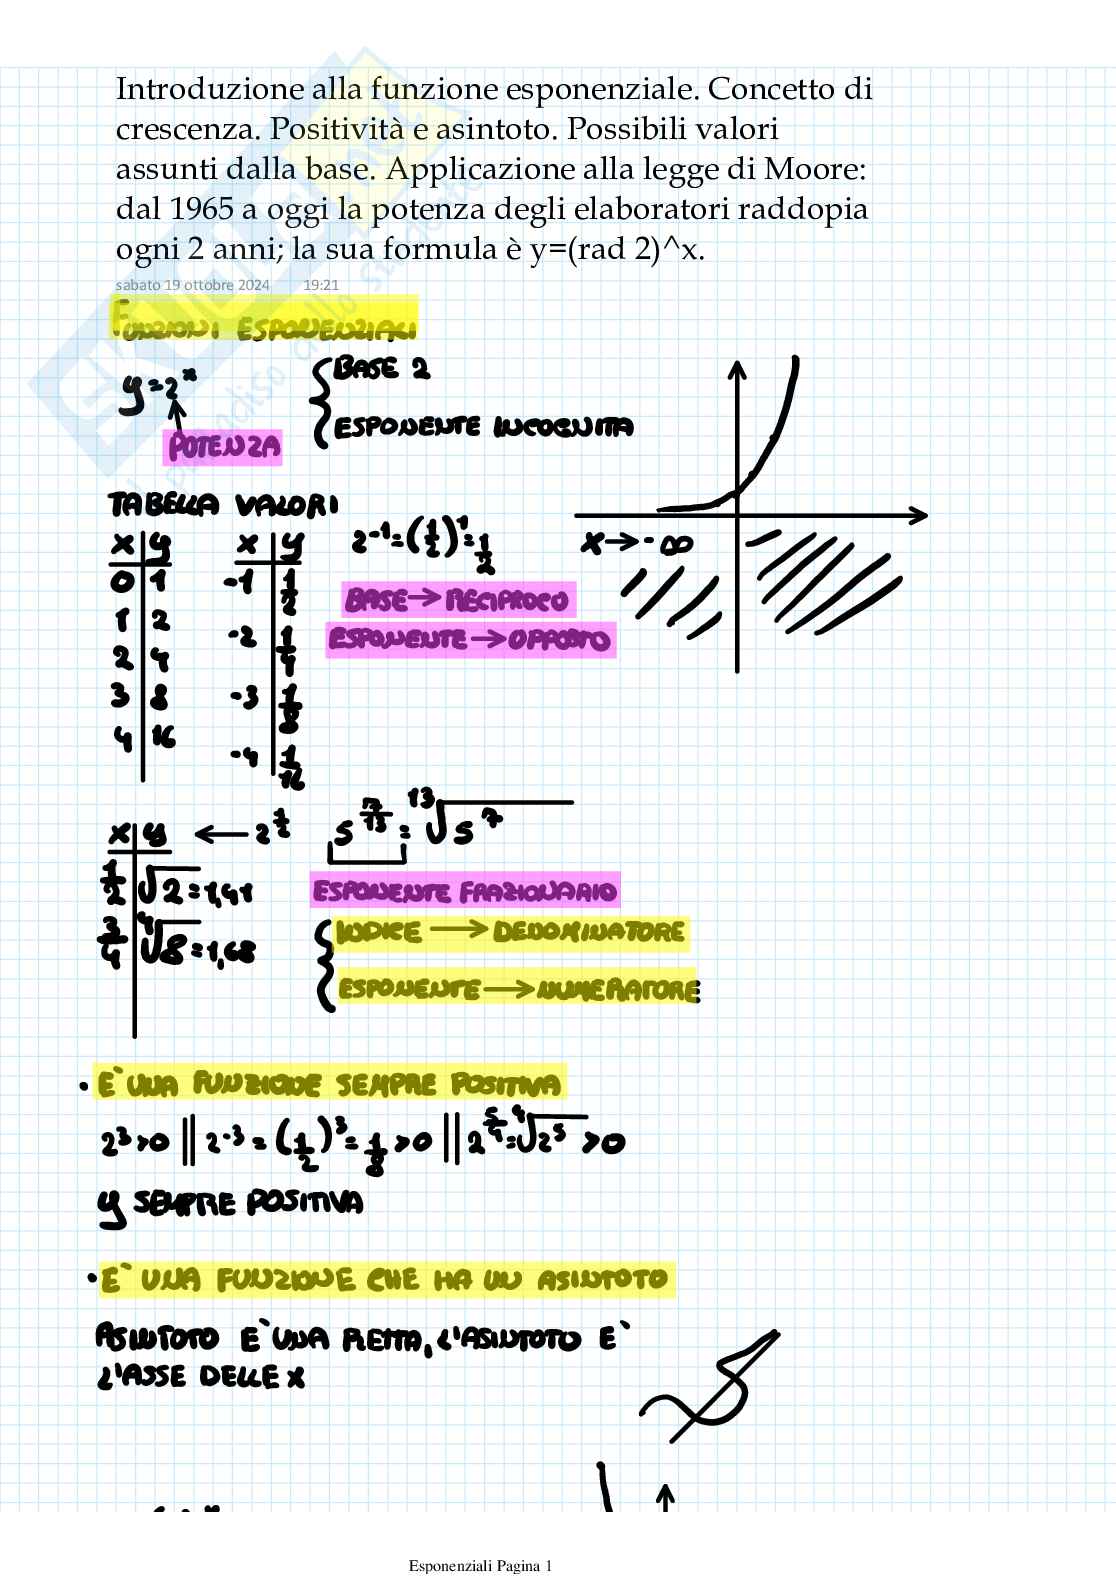 Introduzione alla funzione esponenziale. Concetto di
crescenza. Positività e asintoto. Possibili valori
assunti dalla base. Applicazione alla legge di Moore:
dal 1965 a oggi la potenza degli elaboratori raddopia
ogni 2 anni; la sua formula è y=(rad 2)^x.
sabato 19 ottobre 2024 19:21
FUNZIONI ESPONENZIALI
y=2^x { BASE 2
ESPONENTE INCOGNITA
POTENZA
TABELLA VALORI
x y
0 1
1 2
2 4
3 8
4 16
x y
-1 1/2
-2 1/4
-3 1/8
-4 1/16
2^-1=(1/2)^1=1/2
BASE→RECIPROCO
ESPONENTE→OPPOSTO
x→-∞
x y ← 2^1/2
1/2 √2=1,41
3/4 ⁴√8=1,68
5^7/13=¹³√5^7
ESPONENTE FRAZIONARIO
{ INDICE → DENOMINATORE
ESPONENTE → NUMERATORE
• E` UNA FUNZIONE SEMPRE POSITIVA
2^3>0 || 2^-3=(1/2)^3=1/8>0 || 2^5/4=⁴√2^5>0
y SEMPRE POSITIVA
• E` UNA FUNZIONE CHE HA UN ASINTOTO
ASINTOTO E` UNA RETTA, L'ASINTOTO E`
L'ASSE DELLE X
Esponenziali Pagina 1